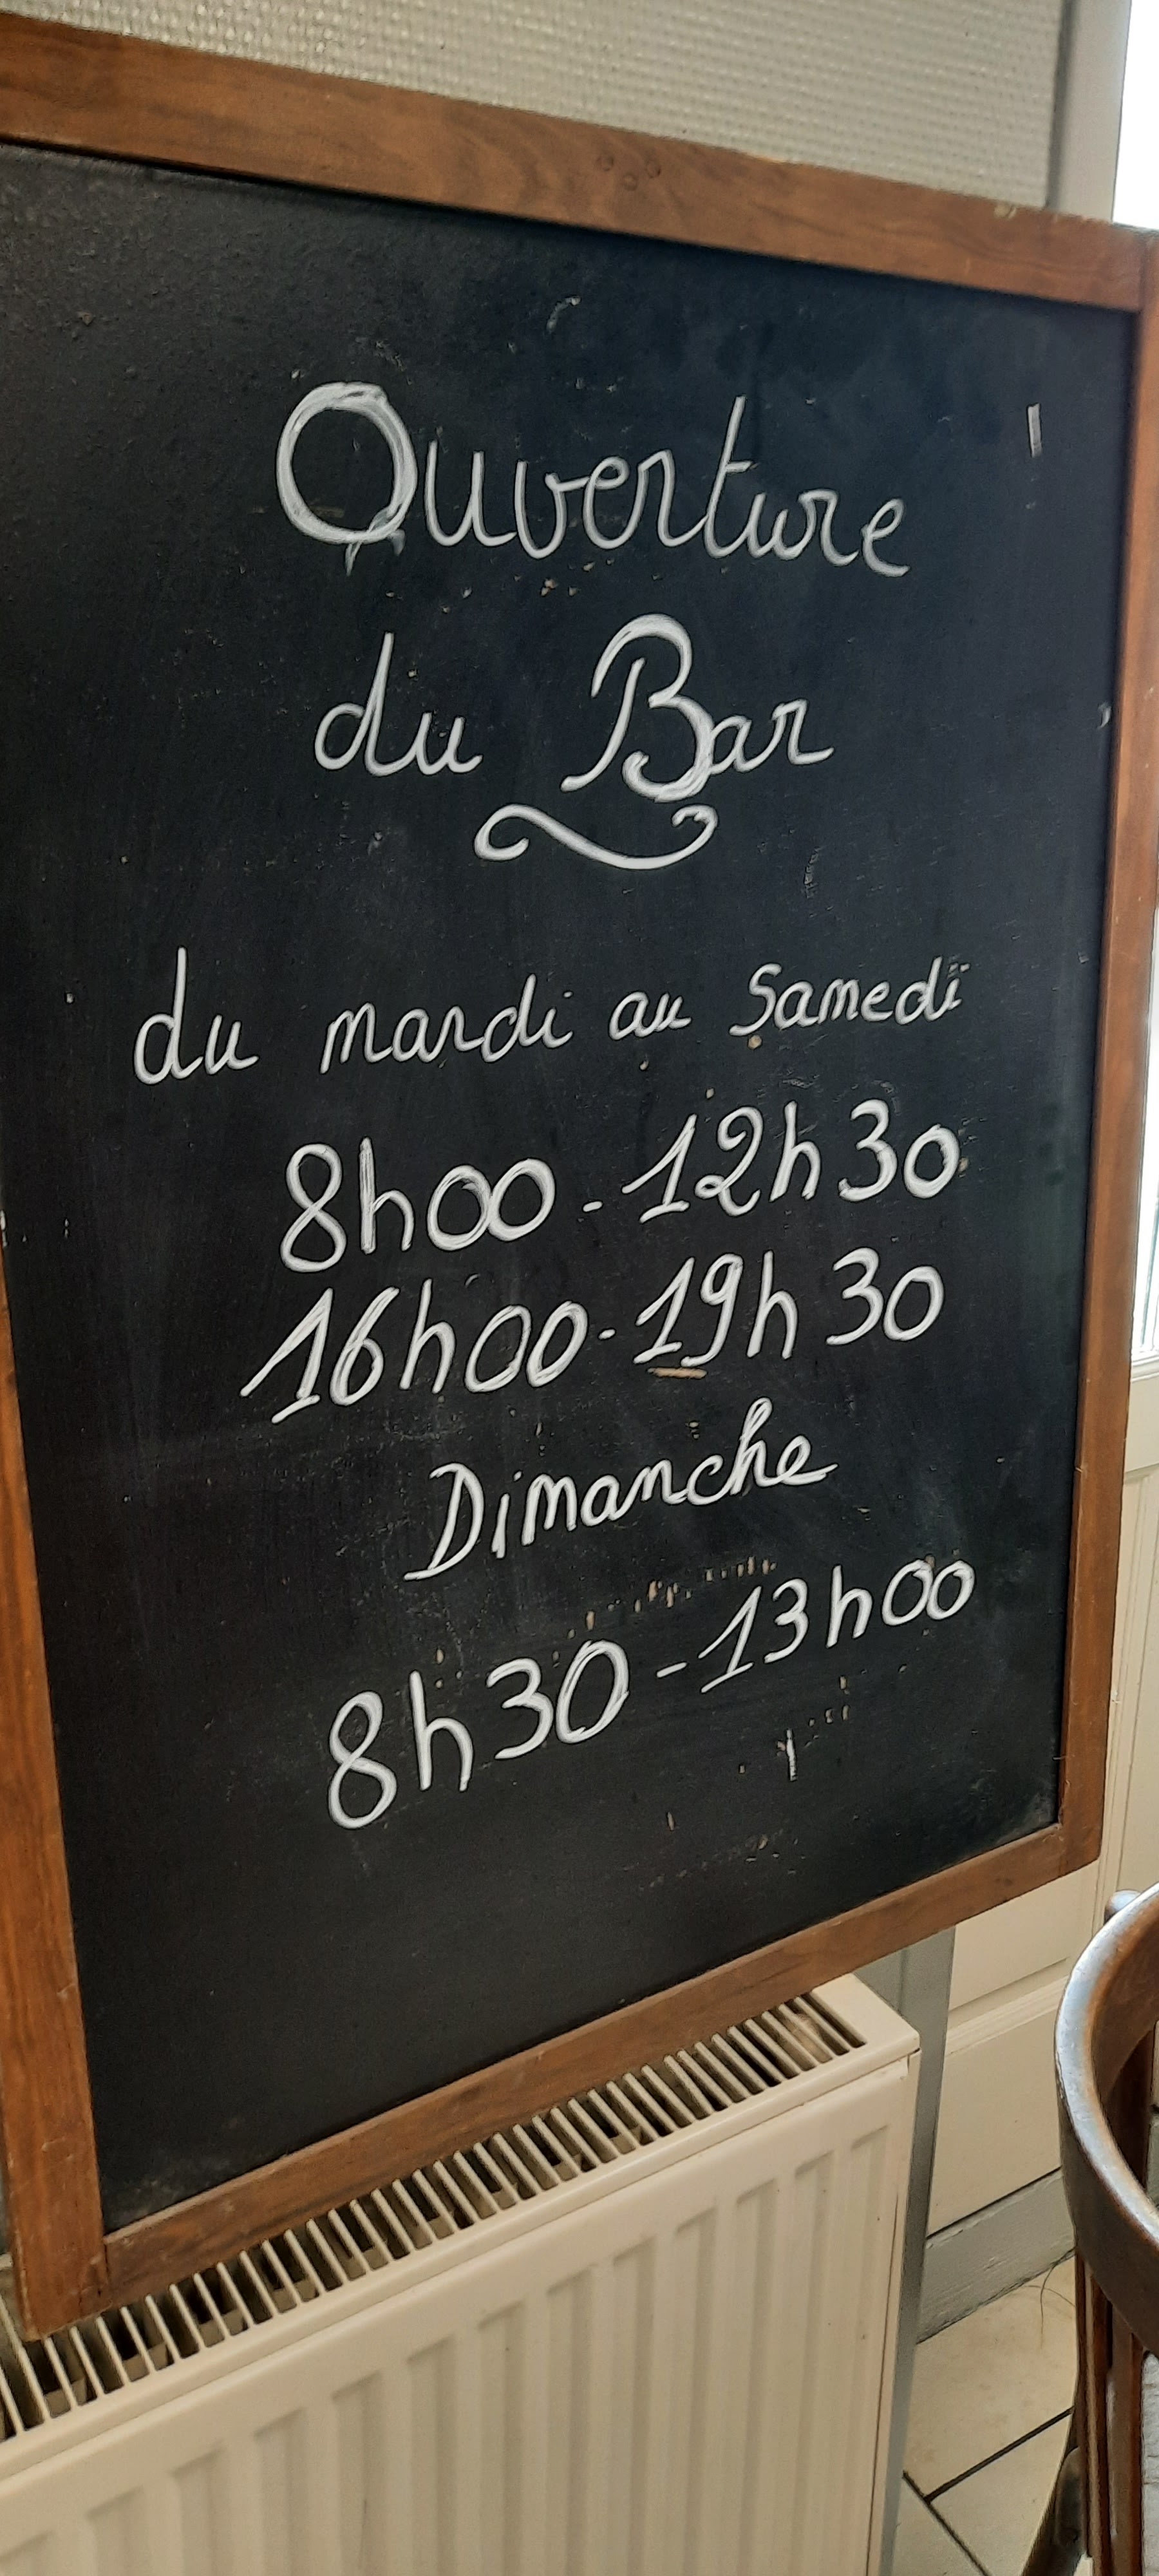 Ouverture
du Bar
du mardi au Samedi
8h00 - 12h30
16h00 - 19h30
Dimanche
8h30 - 13h00